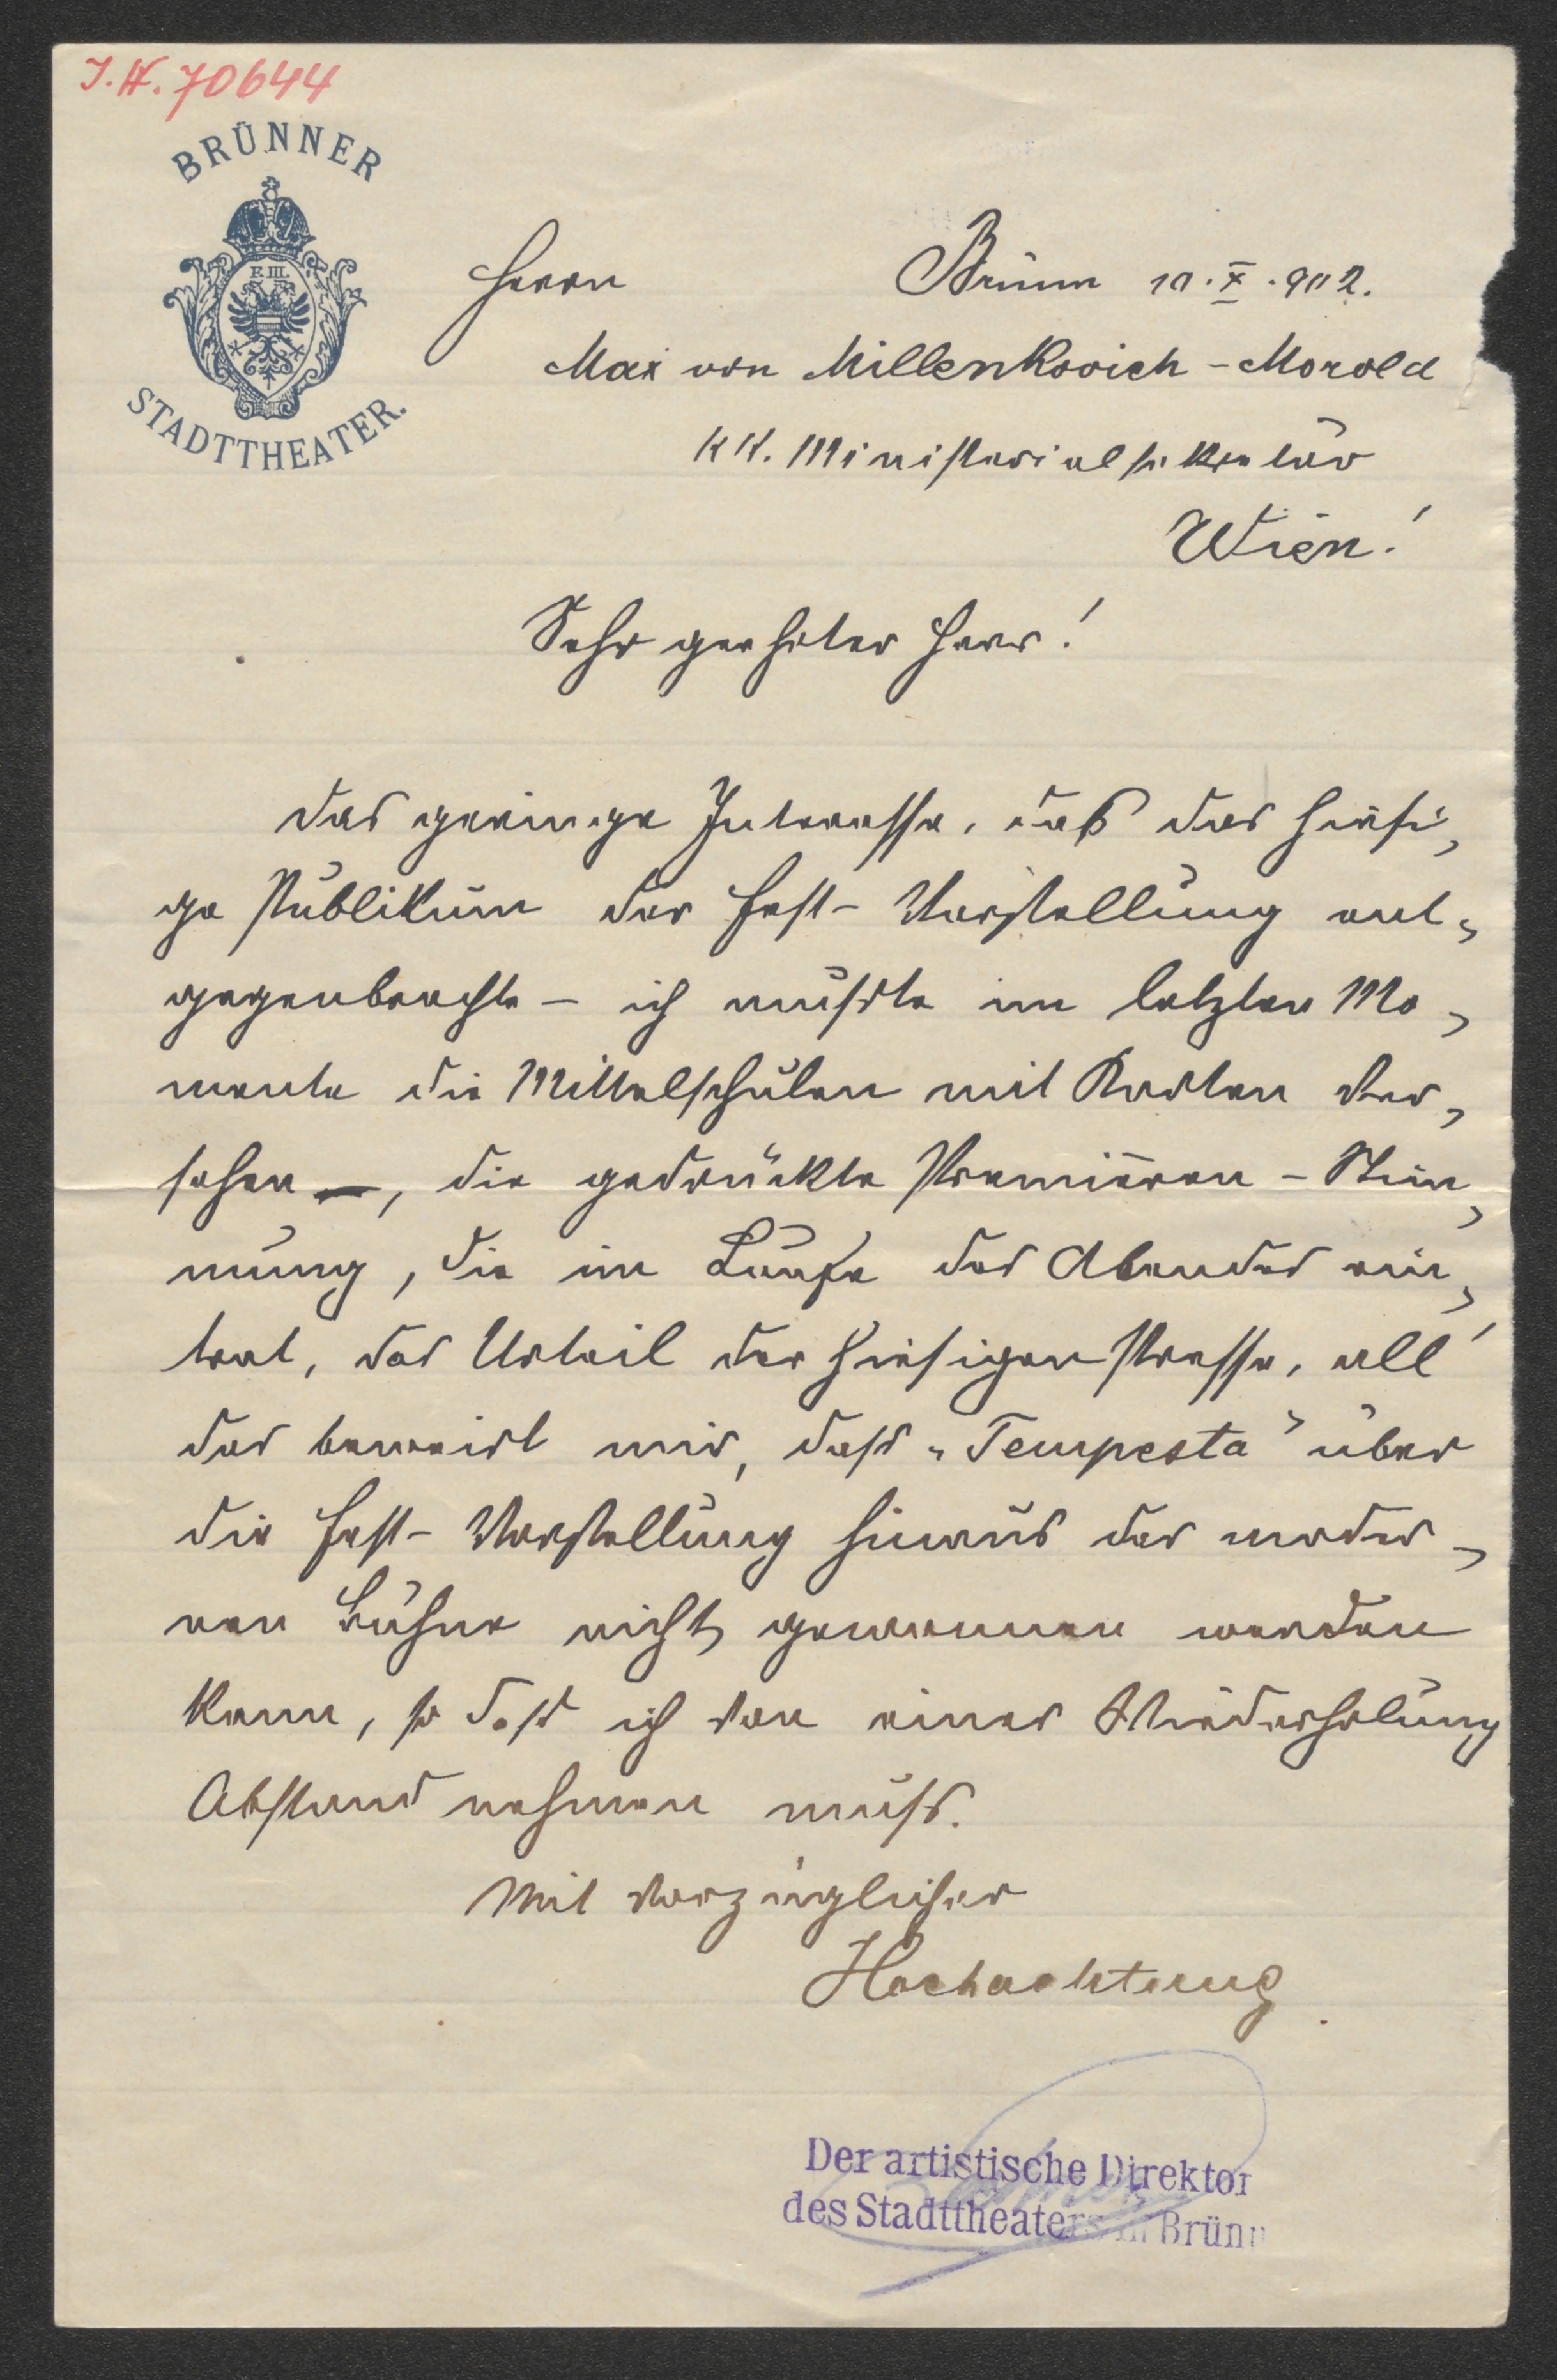 I.N. 70644
BRÜNNER
F. III.
STADTTHEATER.
Herrn Brünn 10.X.902.
Max von Millenkovich-Morold
KK. Ministerialsekretär
Wien!
Sehr geehrter Herr!
Das geringe Interesse, daß das hiesi-
ge Publikum der Fest-Vorstellung ent-
gegenbrachte – ich mußte im letzten Mo-
mente die Mittelschulen mit Karten ver-
sehen –, die gedrückte Premièren-Stim-
mung, die im Laufe des Abendes ein-
trat, das Urteil der hiesigen Presse, all'
das beweist mir, dass „Tempesta" über
die Fest-Vorstellung hinaus der moder-
nen Bühne nicht gewonnen werden
kann, so dass ich von einer Wiederholung
Abstand nehmen muss.
Mit vorzüglicher
Hochachtung
Der artistische Direktor
des Stadttheaters in Brünn